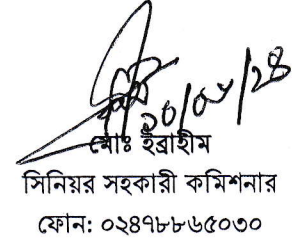 মোঃ ইব্রাহীম
সিনিয়র সহকারী কমিশনার
ফোন: ০২৪৭৮৮৬৫০৩০